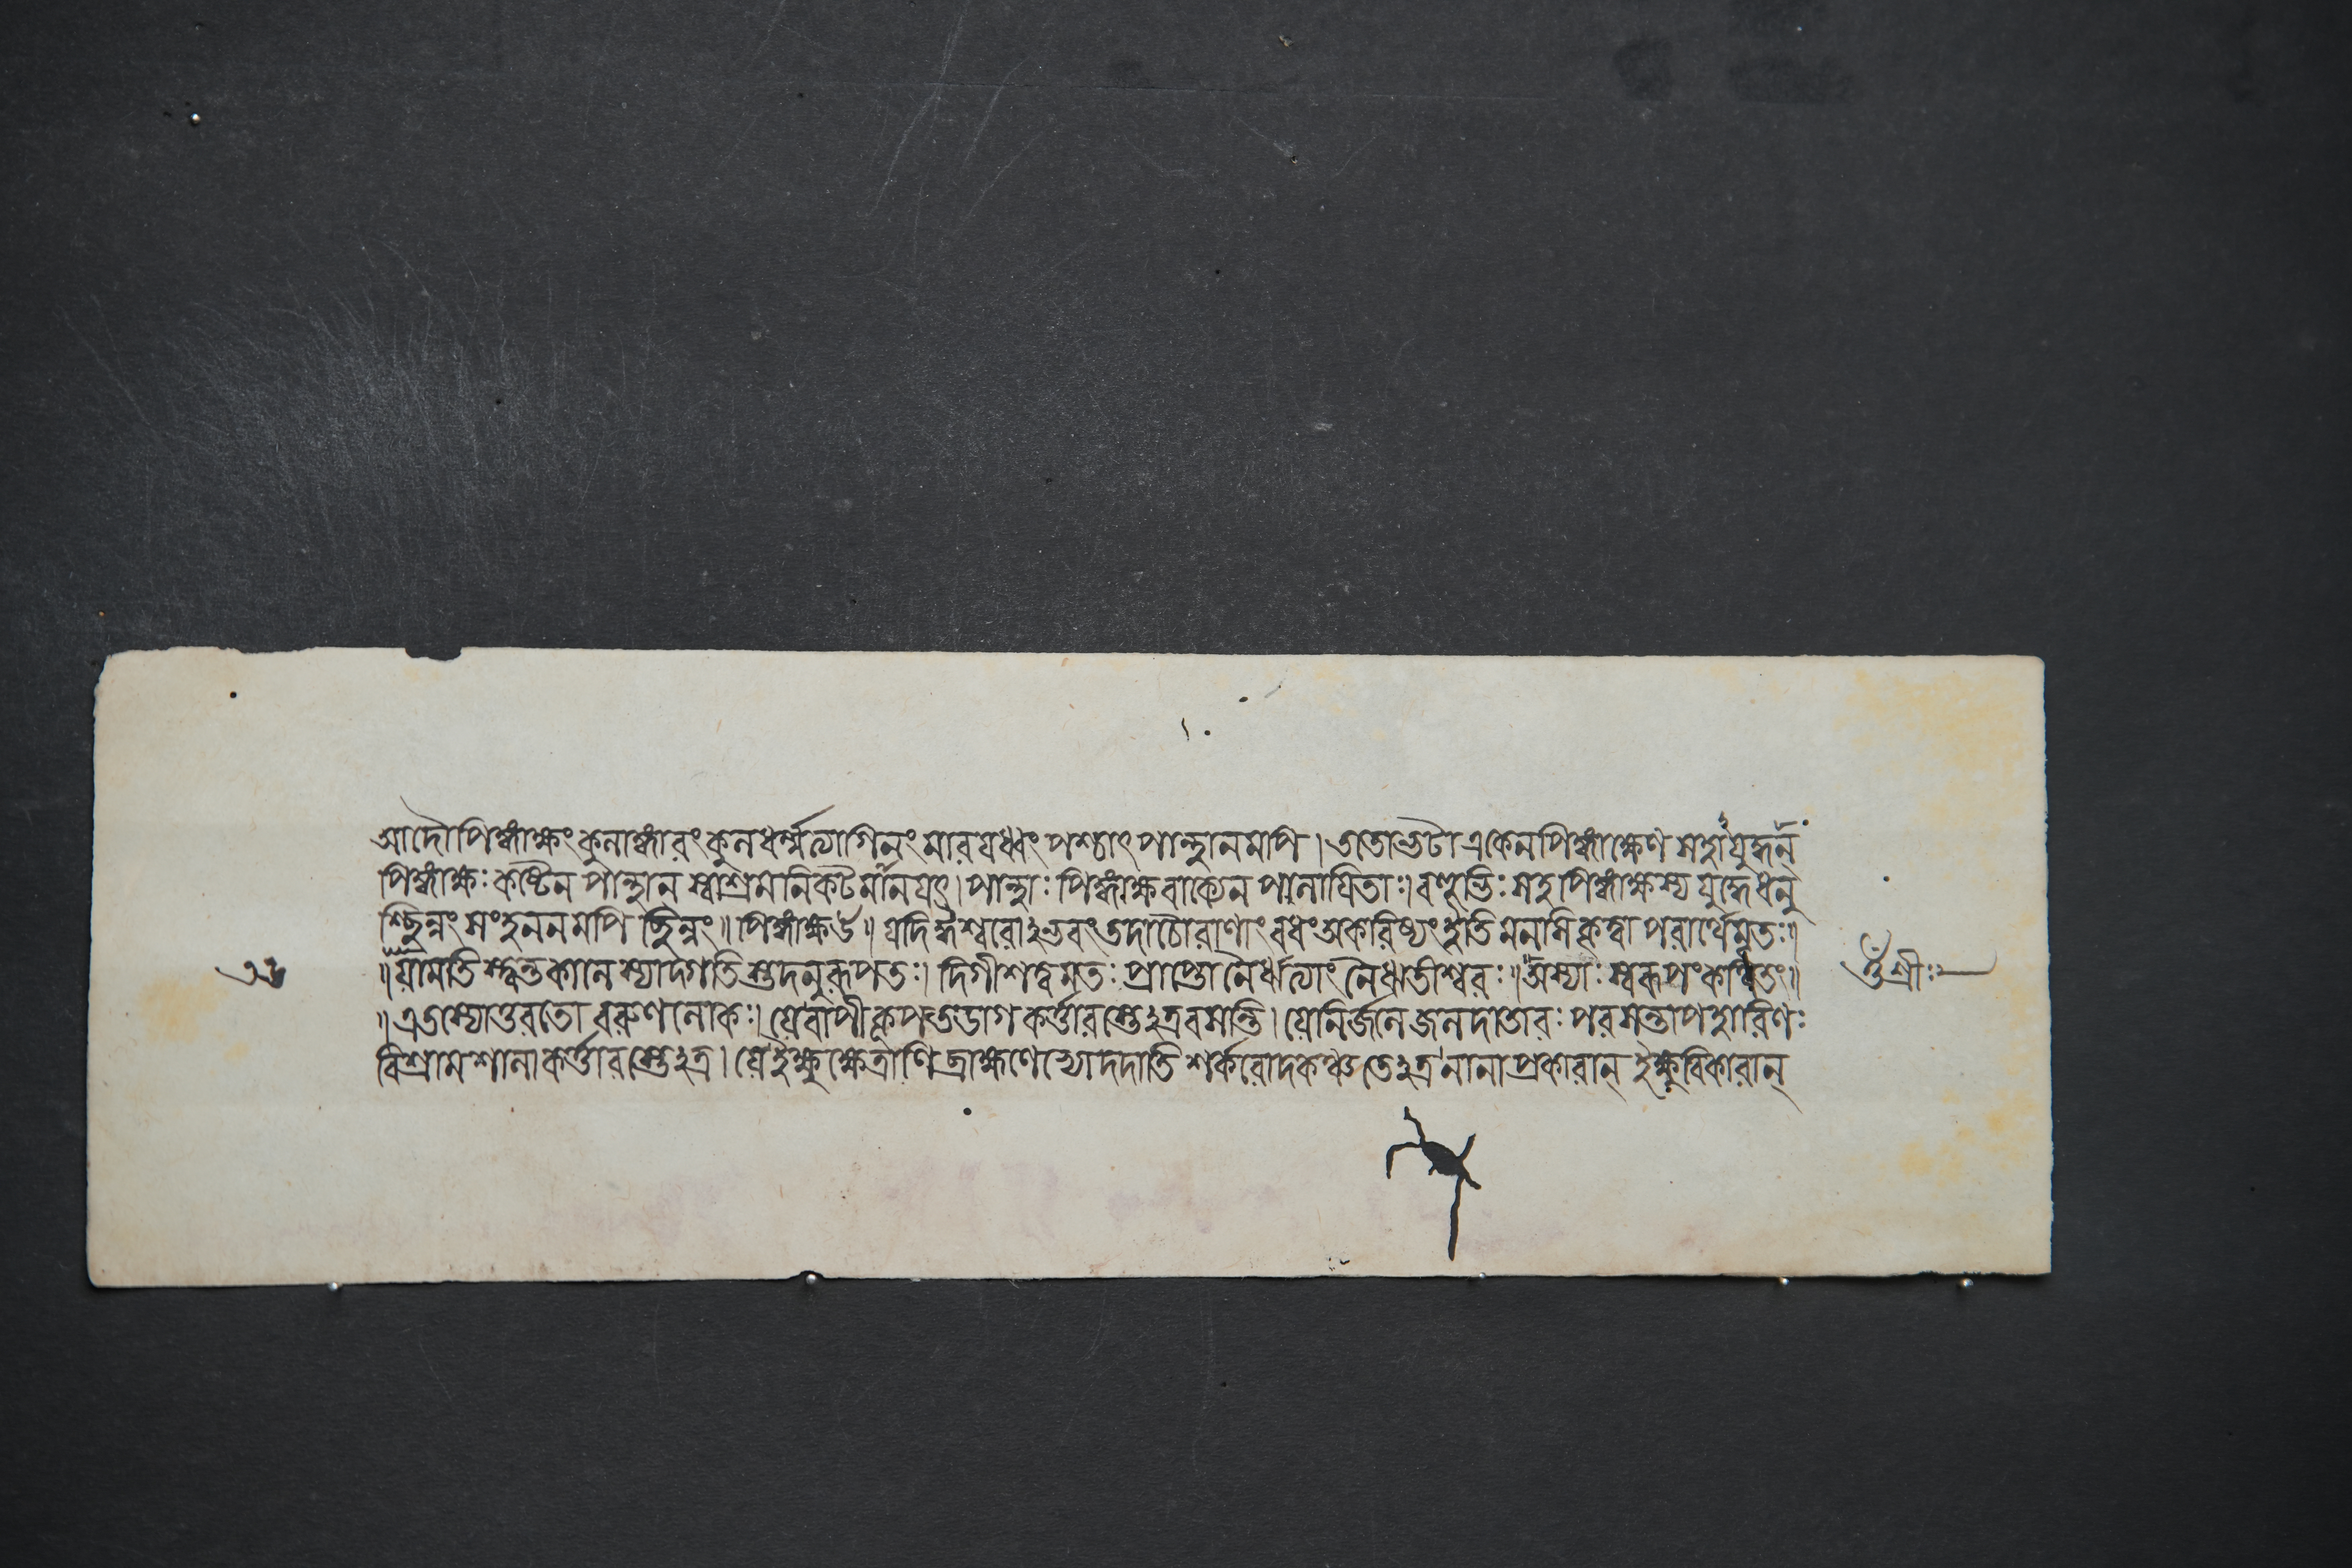 আদৌ পিঙ্গাক্ষং কুলাঙ্গারং কুলধর্ম্মত্যাগিনং মারয়ধ্বং পশ্চাৎ পান্থানমপি । ততো ভটা একেন পিঙ্গাক্ষেণ সহ
পিঙ্গাক্ষঃ কষ্টেন পান্থান স্বাশ্রমনিকটমানয়ৎ । পান্থাঃ পিঙ্গাক্ষবাক্যেন পলায়িতাঃ । বহুভিঃ সহ পিঙ্গাক্ষস্য যুদ্ধে ধনু
শ্ছিন্নং সংহননমপি ছিন্নং ॥ পিঙ্গাক্ষ উ ॥ যদিহৈশ্বরোঽভবং তদা চৌরাণাং বধং অকরিষ্যং ইতি মনসি কৃত্বা পরার্থে মৃতঃ ॥
॥ যা মতিস্ত্বন্তকালে স্যাদ্গতিস্তদনুরূপতঃ । দিগীশত্বমতঃ প্রাপ্তো নৈর্ঋত্যাং নৈর্ঋতীশ্বরঃ ॥ অস্যাঃ স্বরূপং কথিতং ॥
॥ এতস্যোত্তরতো বরুণলোকঃ । যে বাপীকূপতডাগকর্ত্তারস্তেঽত্র বসন্তি । যে নির্জলে জলদাতারঃ পরসন্তাপহারিণঃ
বিশ্রামশালাকর্ত্তারস্তেঽত্র । যে ইক্ষুক্ষেত্রাণি ব্রাহ্মণেভ্যো দদাতি শর্করোদকঞ্চ তেঽত্র নানাপ্রকারান্ ইক্ষুবিকারান্
শ্রীঃ